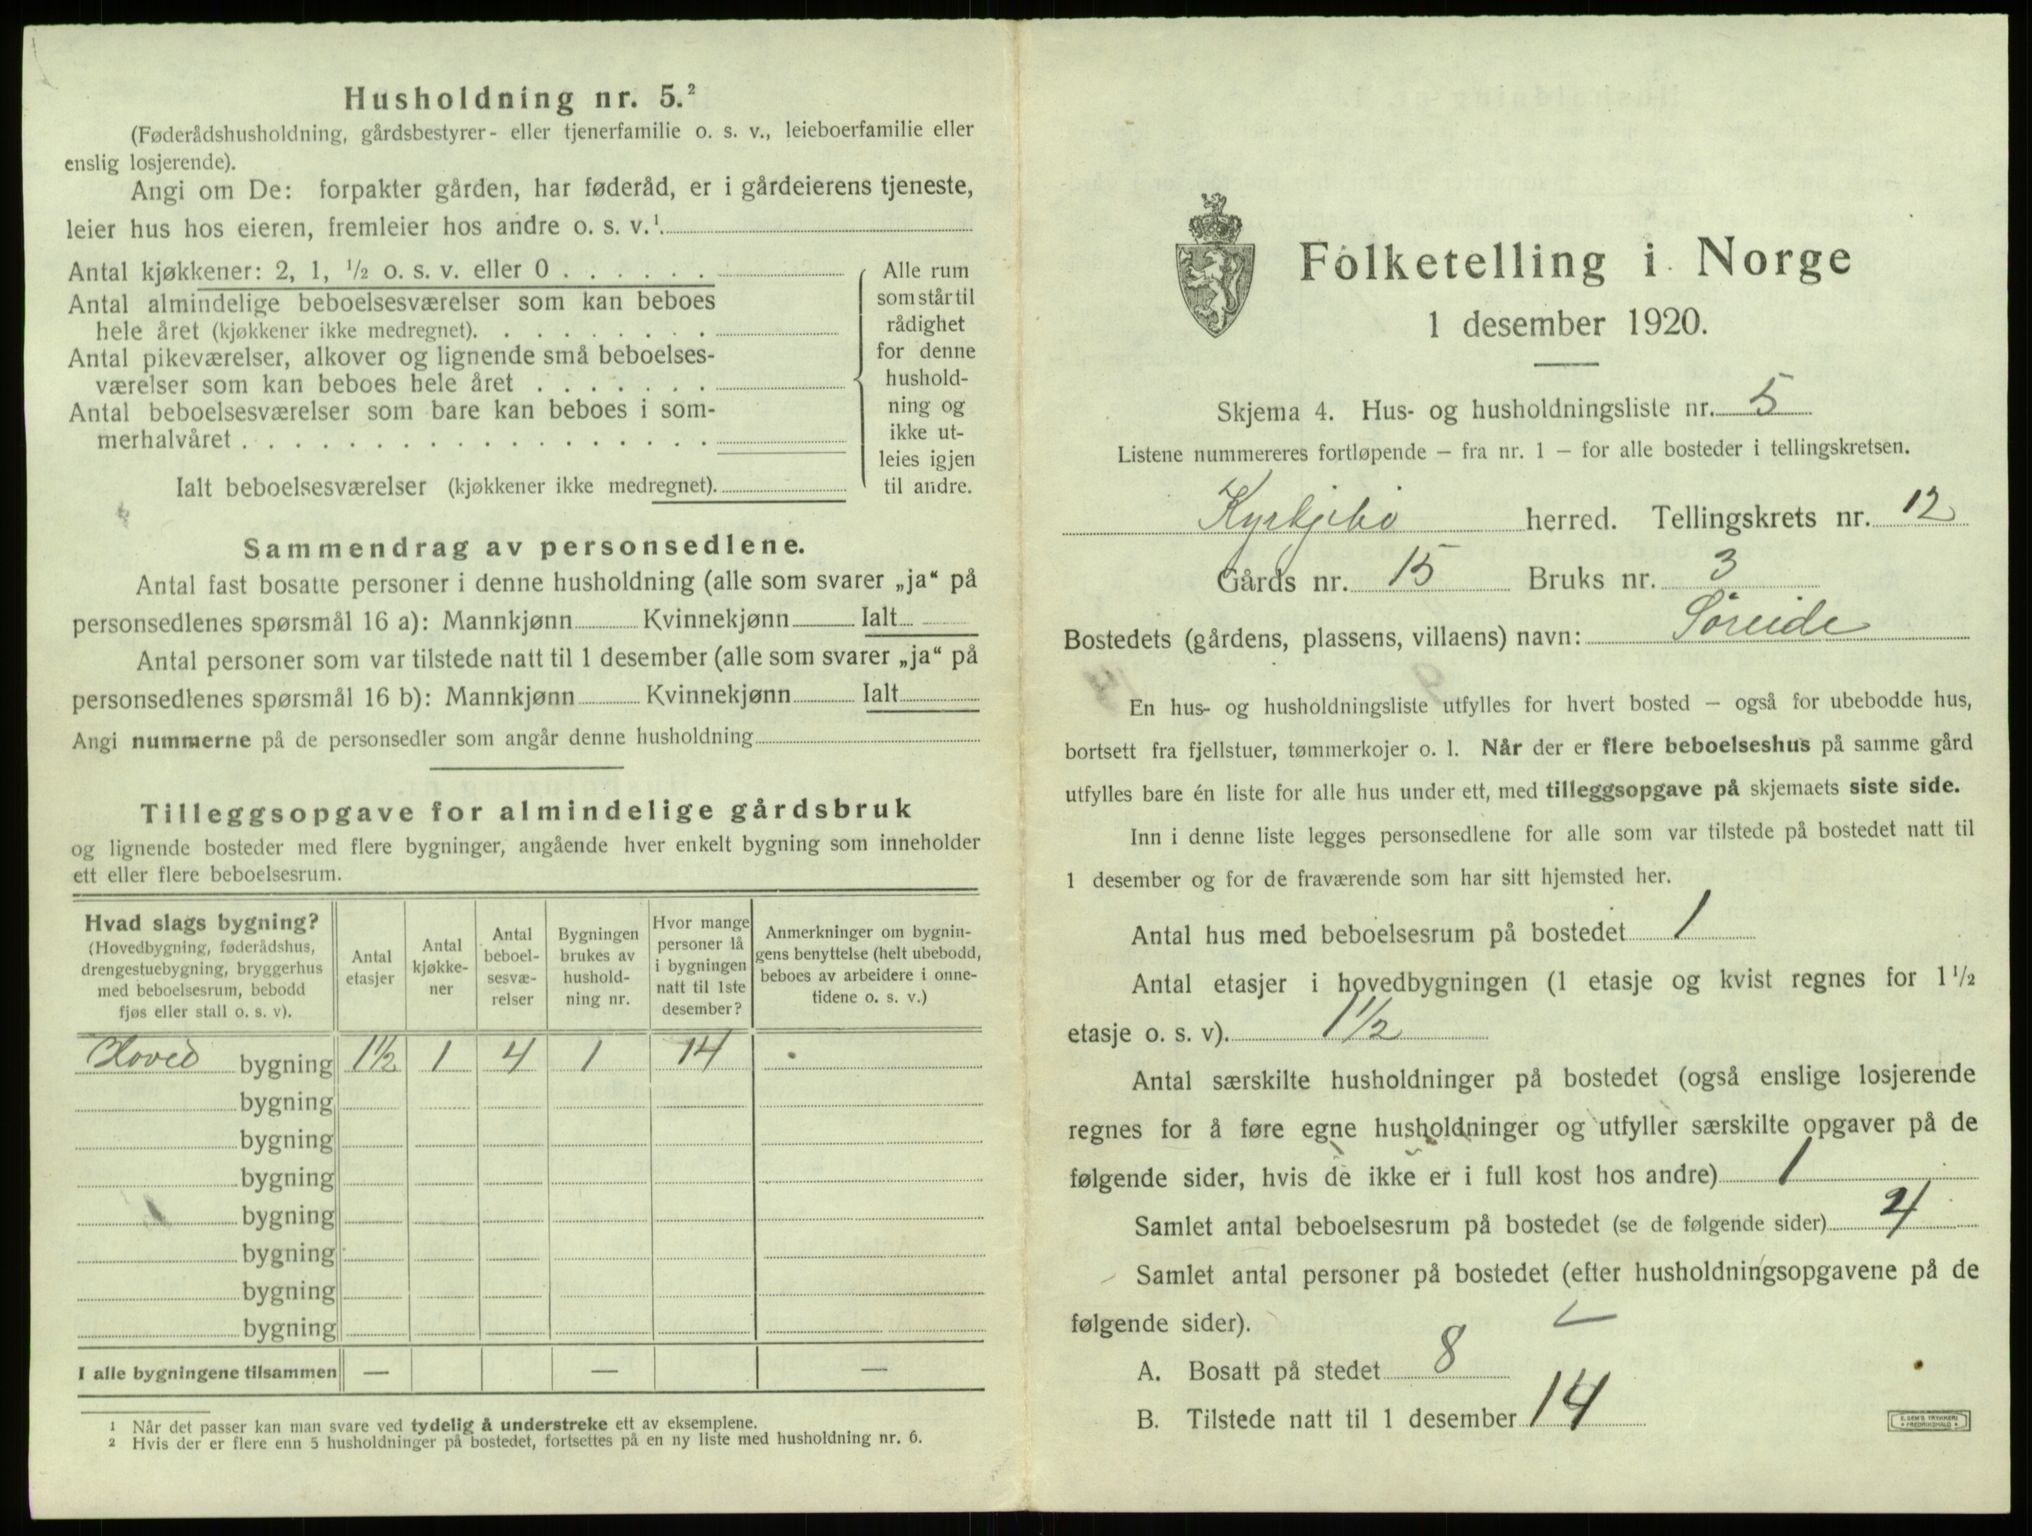 Husholdning nr. 5.²
(Føderådshusholdning, gårdsbestyrer- eller tjenerfamilie o. s. v., leieboerfamilie eller
enslig losjerende).
Angi om De: forpakter gården, har føderåd, er i gårdeierens tjeneste,
leier hus hos eieren, fremleier hos andre o. s. v.¹
Antal kjøkkener: 2, 1, ½ o. s. v. eller 0 . . . . . .
Antal almindelige beboelsesværelser som kan beboes
hele året (kjøkkener ikke medregnet). . . . . . . . .
Antal pikeværelser, alkover og lignende små beboelses-
værelser som kan beboes hele året . . . . . . .
Antal beboelsesværelser som bare kan beboes i som-
merhalvåret . . . . . . . . . . . . . . . . . .
Ialt beboelsesværelser (kjøkkener ikke medregnet).
Alle rum
som står til
rådighet
for denne
hushold-
ning og
ikke ut-
leies igjen
til andre.
Sammendrag av personsedlene.
Antal fast bosatte personer i denne husholdning (alle som svarer „ja“ på
personsedlenes spørsmål 16 a): Mannkjønn Kvinnekjønn Ialt
Antal personer som var tilstede natt til 1 desember (alle som svarer „ja“ på
personsedlenes spørsmål 16 b): Mannkjønn Kvinnekjønn Ialt
Angi nummerne på de personsedler som angår denne husholdning
Tilleggsopgave for almindelige gårdsbruk
og lignende bosteder med flere bygninger, angående hver enkelt bygning som inneholder
ett eller flere beboelsesrum.
Hvad slags bygning?
(Hovedbygning, føderådshus,
drengestuebygning, bryggerhus
med beboelsesrum, bebodd
fjøs eller stall o. s. v).
Antal
etasjer
Antal
kjøkke-
ner
Antal
beboel-
sesvæ-
relser
Bygningen
brukes av
hushold-
ning nr.
Hvor mange
personer lå
i bygningen
natt til 1ste
desember?
Anmerkninger om bygnin-
gens benyttelse (helt ubebodd,
beboes av arbeidere i onne-
tidene o. s. v.)
Hoved bygning 1½ 1 4 1 14
bygning
bygning
bygning
bygning
bygning
bygning
bygning
I alle bygningene tilsammen — — —
¹ Når det passer kan man svare ved tydelig å understreke ett av eksemplene.
² Hvis der er flere enn 5 husholdninger på bostedet, fortsettes på en ny liste med husholdning nr. 6.
Folketelling i Norge
1 desember 1920.
Skjema 4. Hus- og husholdningsliste nr. 5
Listene nummereres fortløpende – fra nr. 1 – for alle bosteder i tellingskretsen.
Kyrkjebø herred. Tellingskrets nr. 12
Gårds nr. 15 Bruks nr. 3
Bostedets (gårdens, plassens, villaens) navn: Søreide
En hus- og husholdningsliste utfylles for hvert bosted – også for ubebodde hus,
bortsett fra fjellstuer, tømmerkojer o. l. Når der er flere beboelseshus på samme gård
utfylles bare én liste for alle hus under ett, med tilleggsopgave på skjemaets siste side.
Inn i denne liste legges personsedlene for alle som var tilstede på bostedet natt til
1 desember og for de fraværende som har sitt hjemsted her.
Antal hus med beboelsesrum på bostedet 1
Antal etasjer i hovedbygningen (1 etasje og kvist regnes for 1½
etasje o. s. v). 1½
Antal særskilte husholdninger på bostedet (også enslige losjerende
regnes for å føre egne husholdninger og utfyller særskilte opgaver på de
følgende sider, hvis de ikke er i full kost hos andre) 1
Samlet antal beboelsesrum på bostedet (se de følgende sider) 4
Samlet antal personer på bostedet (efter husholdningsopgavene på de
følgende sider).
A. Bosatt på stedet 8
B. Tilstede natt til 1 desember 14
E. SEM'S TRYKKERI
FREDRIKSHALD